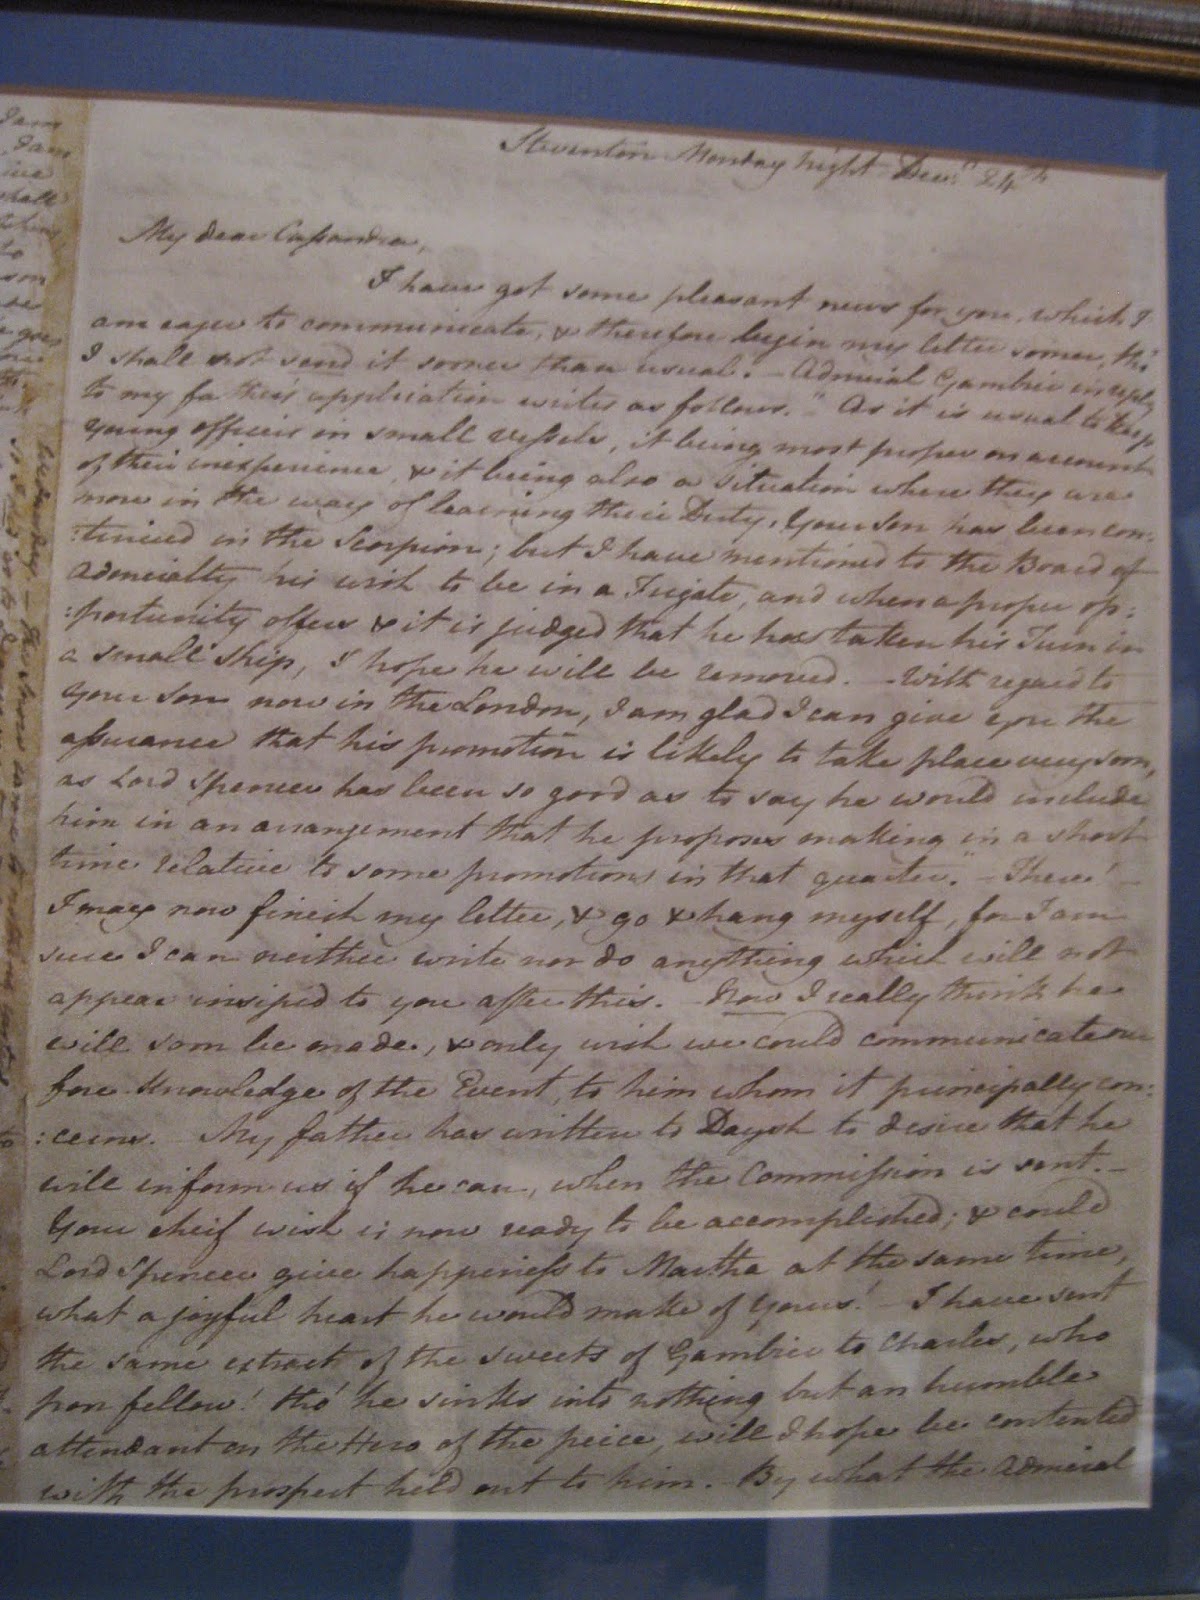 Steventon Monday night Decr. 24th
My dear Cassandra,
I have got some pleasant news for you, which I
am eager to communicate, & therefore begin my letter sooner, tho'
I shall not send it sooner than usual. – Admiral Gambier in reply
to my father's application writes as follows. "As it is usual to keep
young officers in small vessels, it being most proper on account
of their inexperience, & it being also a situation where they are
more in the way of learning their Duty, Your Son has been con:
:tinued in the Scorpion; but I have mentioned to the Board of
Admiralty his wish to be in a Frigate, and when a proper op:
:portunity offers & it is judged that he has taken his Turn in
a small Ship, I hope he will be removed. – With regard to
Your Son now in the London, I am glad I can give you the
assurance that his promotion is likely to take place very soon,
as Lord Spencer has been so good as to say he would include
him in an arrangement that he proposes making in a short
time relative to some promotions in that quarter." – There! –
I may now finish my letter, & go & hang myself, for I am
sure I can neither write nor do anything which will not
appear insipid to you after this. – Now I really think he
will soon be made, & only wish we could communicate our
fore-knowledge of the Event, to him whom it principally con:
:cerns. – My father has written to Daysh to desire that he
will inform us if he can, when the Commission is sent. –
Your cheif wish is now ready to be accomplished; & could
Lord Spencer give happiness to Martha at the same time,
what a joyful heart he would make of Yours! – I have sent
the same extract of the sweets of Gambier to Charles, who
poor fellow! tho' he sinks into nothing but an humble
attendant on the Hero of the peice, will I hope be contented
with the prospect held out to him. – By what the Admiral